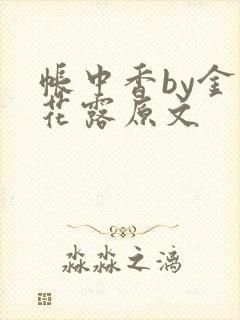 帐中香by金
花露原文
淼淼之漓